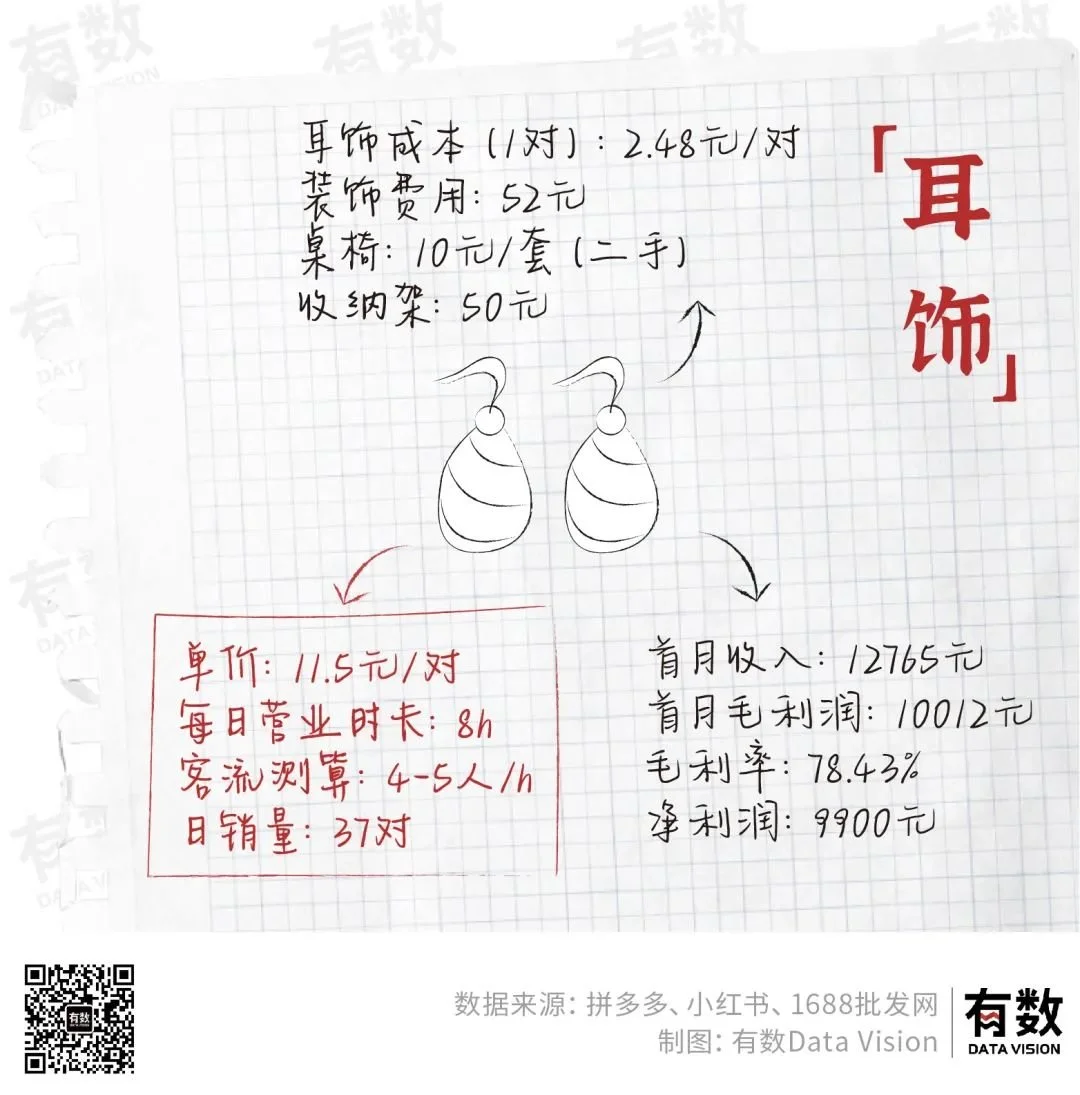 「耳饰」
耳饰成本(1对):2.48元/对
装饰费用:52元
桌椅:10元/套(二手)
收纳架:50元
单价:11.5元/对
每日营业时长:8h
客流测算:4-5人/h
日销量:37对
首月收入:12765元
首月毛利润:10012元
毛利率:78.43%
净利润:9900元
数据来源:拼多多、小红书、1688批发网
制图:有数Data Vision
有数
DATA VISION
有数
DATA VISION
有数
有数
有数
有数
DATA
有数
DATA
有数
DATA
有数